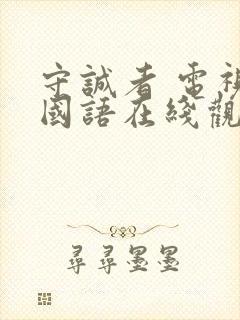 守誠者 電視
國語在綫觀
尋尋墨墨